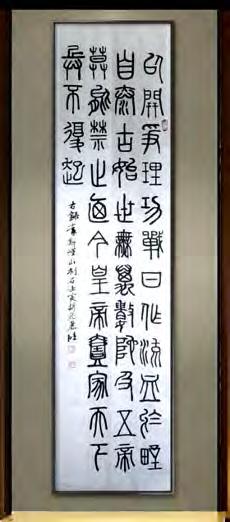 以開爭理功戰日作流血於野
自泰古始世無萬數陀及五帝
莫能禁止迺今皇帝壹家天下
兵不復起
右錄李斯嶧山刻石壬寅